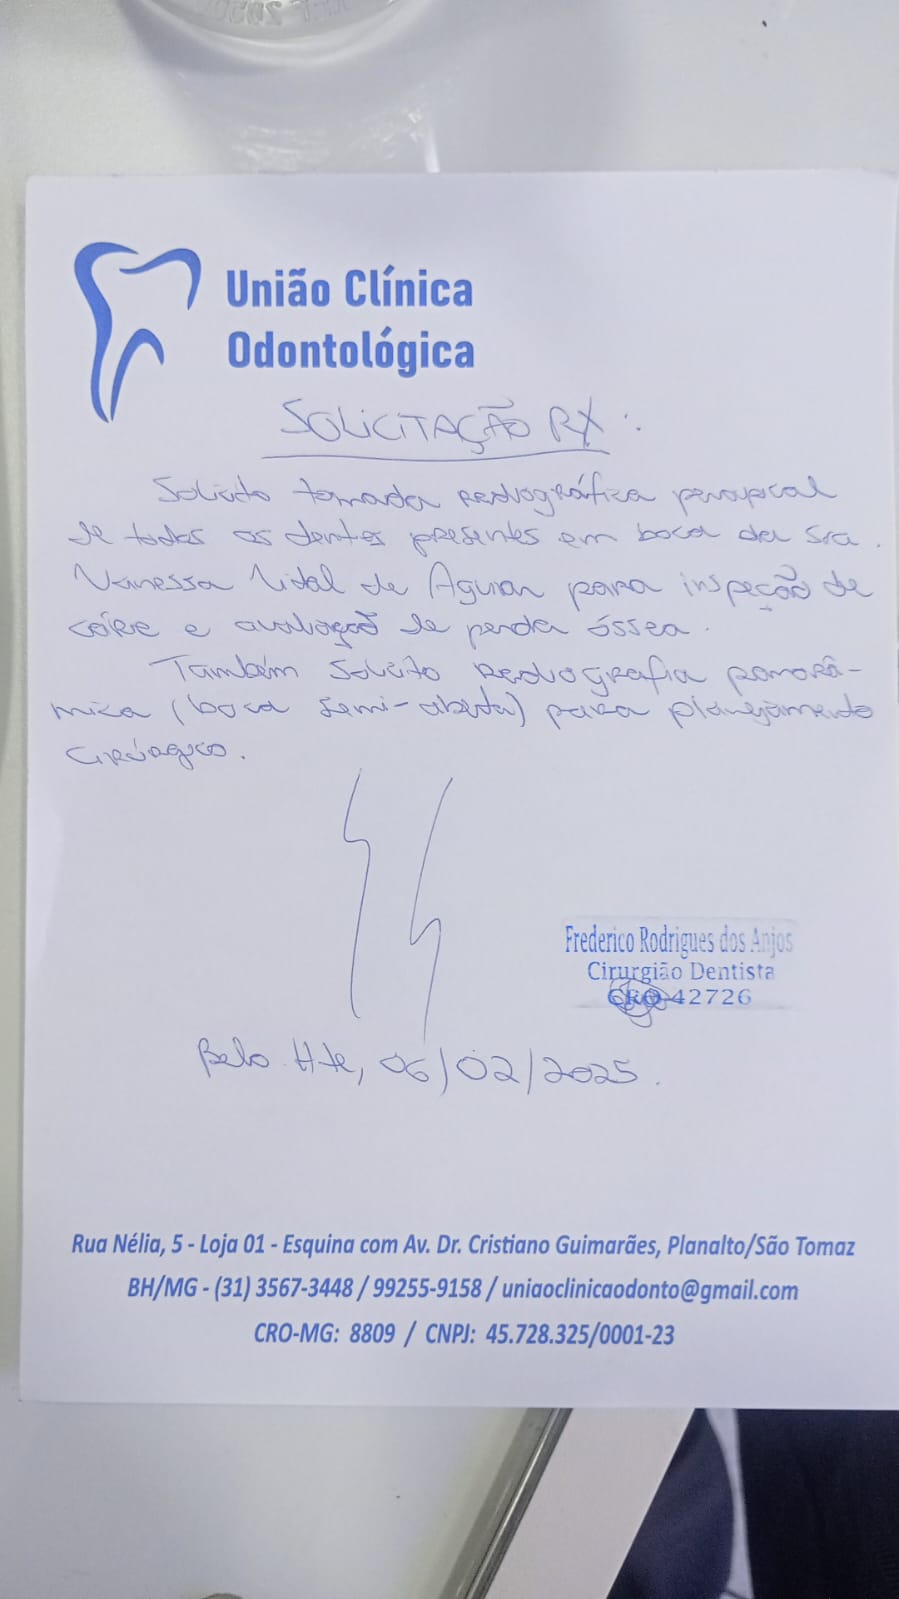 União Clínica
Odontológica
SOLICITAÇÃO RX:
Solicito tomada radiográfica periapical
de todos os dentes presentes em boca da Sra.
Vanessa Vidal de Aguiar para inspeção de
cárie e avaliação de perda óssea.
Também solicito radiografia panorâ-
mica (boca semi-aberta) para planejamento
cirúrgico.
Frederico Rodrigues dos Anjos
Cirurgião Dentista
CRO-42726
Belo Hte, 06/02/2025.
Rua Nélia, 5 - Loja 01 - Esquina com Av. Dr. Cristiano Guimarães, Planalto/São Tomaz
BH/MG - (31) 3567-3448 / 99255-9158 / uniaoclinicaodonto@gmail.com
CRO-MG: 8809 / CNPJ: 45.728.325/0001-23